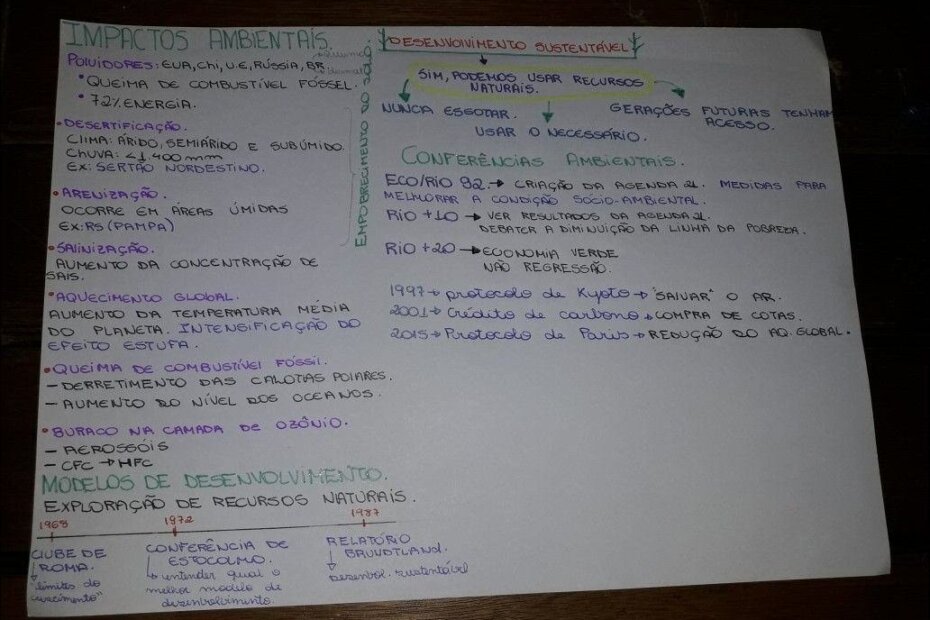 IMPACTOS AMBIENTAIS.
POLUIDORES: EUA, Chi, U.E, RÚSSIA, BR.
• QUEIMA DE COMBUSTÍVEL FÓSSEL.
• 72% ENERGIA.
• DESERTIFICAÇÃO.
CLIMA: ÁRIDO, SEMIÁRIDO E SUBÚMIDO
CHUVA: <1.400 mm
EX: SERTÃO NORDESTINO.
• ARENIZAÇÃO.
OCORRE EM ÁREAS ÚMIDAS
EX: RS (PAMPA)
• SALINIZAÇÃO.
AUMENTO DA CONCENTRAÇÃO DE
SAIS.
• AQUECIMENTO GLOBAL.
AUMENTO DA TEMPERATURA MÉDIA
DO PLANETA. INTENSIFICAÇÃO DO
EFEITO ESTUFA.
• QUEIMA DE COMBUSTÍVEL FÓSSIL.
- DERRETIMENTO DAS CALOTAS POLARES.
- AUMENTO DO NÍVEL DOS OCEANOS.
• BURACO NA CAMADA DE OZÔNIO.
- AEROSSÓIS
- CFC → HFC
EMPOBRECIMENTO DO SOLO.
MODELOS DE DESENVOLVIMENTO.
EXPLORAÇÃO DE RECURSOS NATURAIS.
1968 1972 1987
CLUBE DE
ROMA.
↳ "limites do
crescimento"
CONFERÊNCIA DE
ESTOCOLMO.
↳ entender qual o
melhor modelo de
desenvolvimento.
RELATÓRIO
BRUNDTLAND.
↓
desenvol. sustentável
DESENVOLVIMENTO SUSTENTÁVEL
SIM, PODEMOS USAR RECURSOS
NATURAIS.
NUNCA ESGOTAR.
USAR O NECESSÁRIO.
GERAÇÕES FUTURAS TENHAM
ACESSO.
CONFERÊNCIAS AMBIENTAIS.
ECO/RIO 92. → CRIAÇÃO DA AGENDA 21. MEDIDAS PARA
MELHORAR A CONDIÇÃO SÓCIO-AMBIENTAL.
RIO +10 → VER RESULTADOS DA AGENDA 21.
DEBATER A DIMINUIÇÃO DA LINHA DA POBREZA.
RIO +20 → ECONOMIA VERDE
NÃO REGRESSÃO.
1997 → protocolo de Kyoto → "SALVAR" O AR.
2001 → Crédito de carbono → COMPRA DE COTAS.
2015 → Protocolo de Paris → REDUÇÃO DO AQ. GLOBAL.